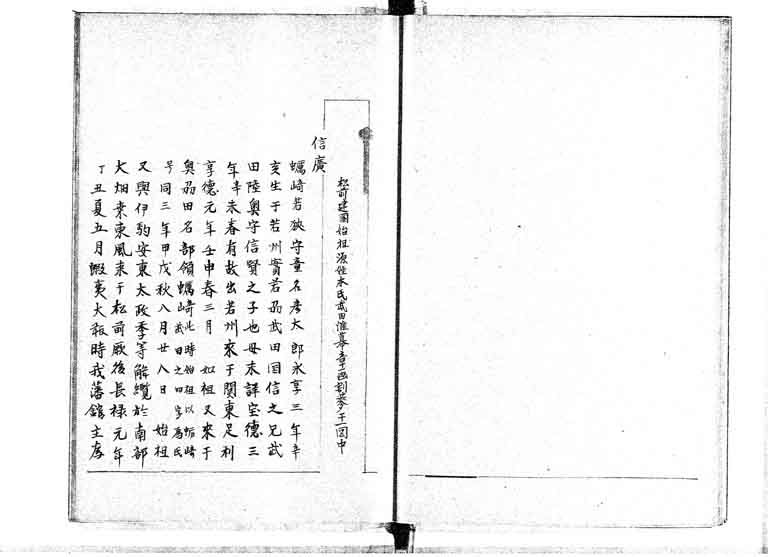 松前建國始祖源姓本氏武田惟幕
信廣
蠣崎若狹守童名彦太郎永享三年辛
亥生于若州實若州武田国信之兄武
田陸奥守信賢之子也母未詳宝德三
年辛未春有故出若州來于関東足利
享德元年壬申春三月 始祖又來于
奥州田名部領蠣崎此時始祖以蠣崎武田之四字爲氏
号同三年甲戌秋八月廿八日 始祖
又與伊駒安東太政季等解纜於南部
大畑乗東風来于松前厥後長禄元年
丁丑夏五月蝦夷大叛時我藩舘主